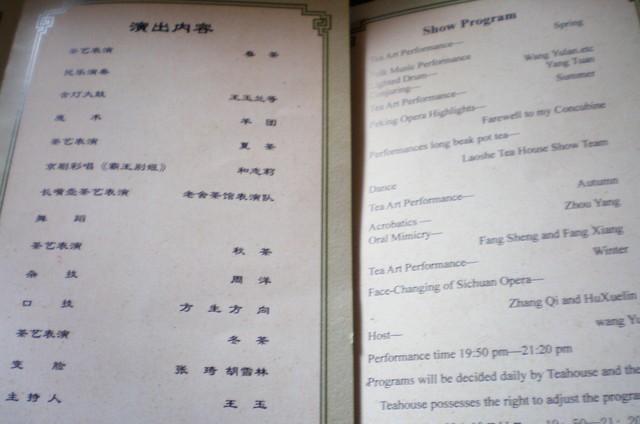 演出内容
茶艺表演 春 茶
民乐演奏
含灯大鼓 王玉兰等
魔 术 羊 团
茶艺表演 夏 茶
京剧彩唱《霸王别姬》 和志莉
长嘴壶茶艺表演 老舍茶馆表演队
舞 蹈
茶艺表演 秋 茶
杂 技 周 洋
口 技 方 生 方 向
茶艺表演 冬 茶
变 脸 张 琦 胡雪林
主 持 人 王 玉
Show Program
Tea Art Performance— Spring
Folk Music Performance
Lighted Drum— Wang Yulan.etc
Conjuring— Yang Tuan
Tea Art Performance— Summer
Peking Opera Highlights—
Farewell to my Concubine
Performances long beak pot tea—
Laoshe Tea House Show Team
Dance
Tea Art Performance— Autumn
Acrobatics — Zhou Yang
Oral Mimicry— Fang Sheng and Fang Xiang
Tea Art Performance— Winter
Face-Changing of Sichuan Opera—
Zhang Qi and HuXuelin
Host— wang Yu
Performance time 19:50 pm—21:20 pm
Programs will be decided daily by Teahouse and the
Teahouse possesses the right to adjust the progra